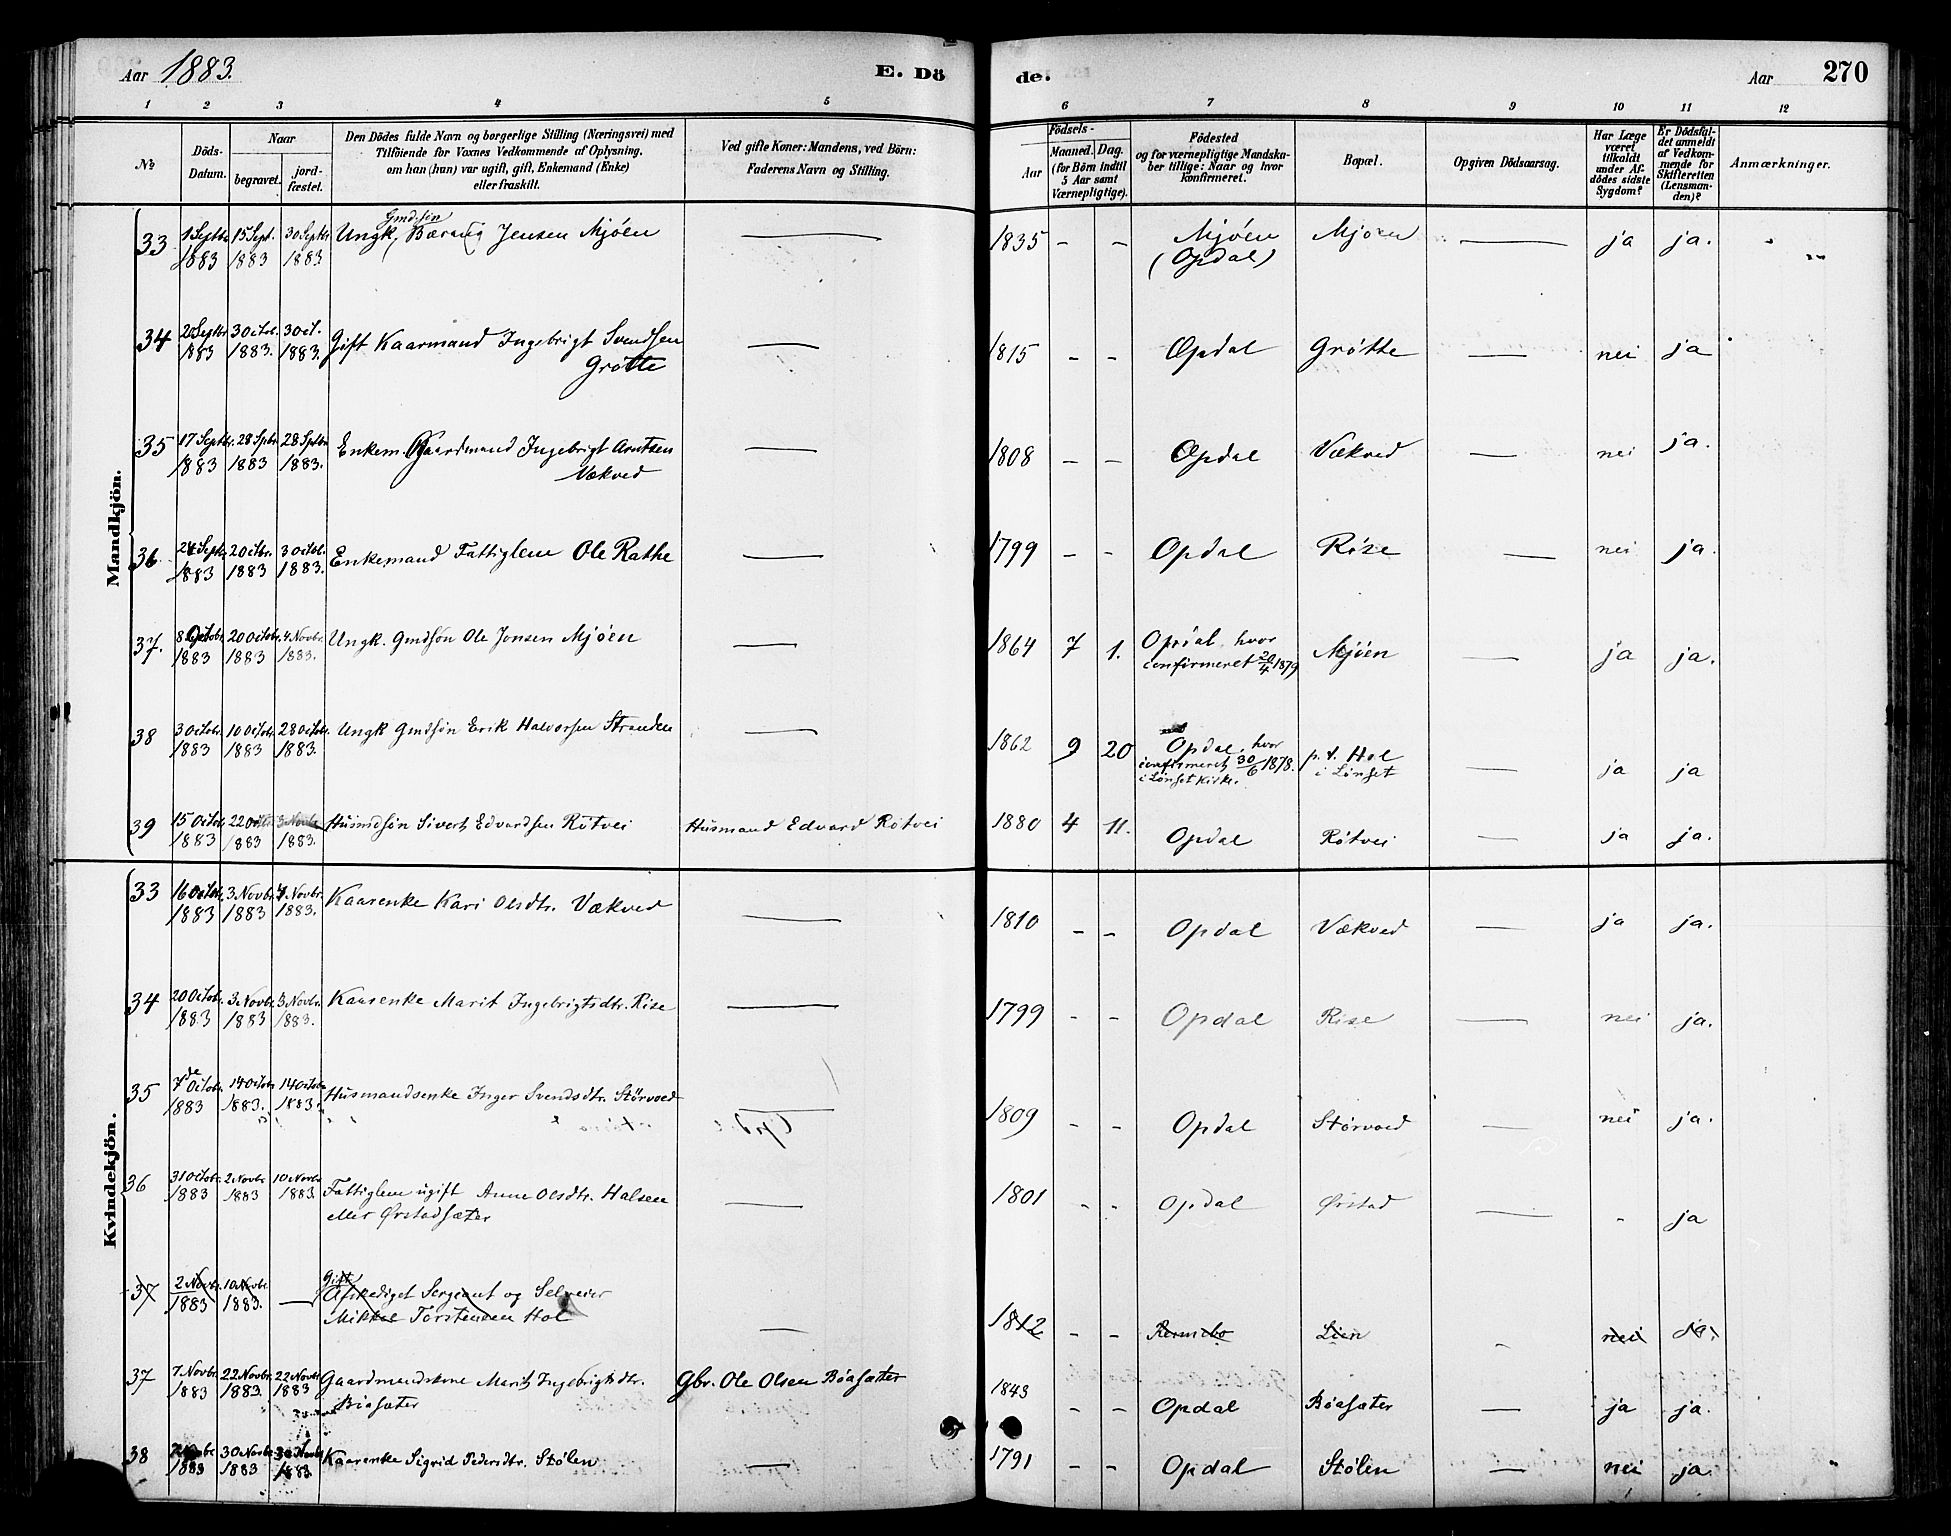 Aar 1883. E. Dö de. Aar 270
1 2 3 4 5 6 7 8 9 10 11 12
№
Döds-Datum.
Naar
begravet.
jordfæstet.
Den Dödes fulde Navn og borgerlige Stilling (Næringsvei) med
Tilföiende for Voxnes Vedkommende af Oplysning,
om han (hun) var ugift, gift, Enkemand (Enke)
eller fraskilt.
Ved gifte Koner: Mandens, ved Börn:
Faderens Navn og Stilling.
Födsels-
Aar
Maaned. Dag.
(for Börn indtil
5 Aar samt
Værnepligtige).
Födested
og for værnepligtige Mandska-
ber tillige: Naar og hvor
konfirmeret.
Bopæl.
Opgiven Dödsaarsag.
Har Læge
været
tilkaldt
under Af-
dödes sidste
Sygdom?
Er Dödsfal-
det anmeldt
af Vedkom-
mende for
Skifteretten
(Lensman-
den)?
Anmærkninger.
Mandkjön.
Gmdsøn
33 1 Septbr. 15 Sept. 30 Septbr Ungk, Jensen Mjøen — 1835 - - Mjøen Mjøen — ja ja.
1883 1883 1883 (Opdal)
34 Septbr 30 30 Gift Kaarmand Ingebrigt Svendsen — 1815 - - Opdal Grøtte — nei ja
1883 1883. 1883. Grøtte
35 17 Septbr. 28 Spbr 28 Sptbr Enkem. Gaardmand Ingebrigt Arntsen — 1808 - - Opdal Vækved — nei ja.
1883 1883 1883. Vækved
36 24 Septbr 20 30 Enkemand Fattiglem Ole Rathe — 1799 - - Opdal Rise — nei ja.
1883 1883 1883.
37. 8 Octobr. 20 Octobr. 4 Novbr. Ungk. Gmdsøn Ole Jonsen Mjøen — 1864 7 1. Opdal, hvor Mjøen — ja ja.
1883 1883 1883. confirmeret 20/4 1879
38 3 Octobr. 10 Octobr. 28 Octobr. Ungk Gmdsøn Erik Halvorsen Stranden — 1862 9 20 Opdal, hvor p. t. Hol — ja ja
1883 1883 1883. confirmeret 30/6 1878. i Lønset
i Lønset Kirke.
39 15 Octobr. 22 3 Novbr Husmdsøn Sivert Edvardsen Røtvei Husmand Edvard Røtvei 1880 4 11. Opdal Røtvei — ja ja.
1883 1883 1883.
Kvindekjön.
33 16 Octobr. 3 Novbr. 4 Novbr. Kaarenke Kari Olsdtr. Vækved — 1810 - - Opdal Vækved — ja ja.
1883 1883 1883.
34 20 Octobr. 3 Novbr. 3 Novbr. Kaarenke Marit Ingebrigtsdtr. Rise — 1799 - - Opdal Rise — nei ja.
1883 1883 1883.
35 7de Octobr. 14 Octobr. 14 Octobr. Husmandsenke Inger Svendsdtr. Størvoed — 1809 - - Opdal Størvoed — nei ja.
1883 1883. 1883.
36 31 Octobr. 2 Novbr. 10 Novbr. Fattiglem ugift Anne Olsdtr. Halsen — 1801 - - Opdal Ørstad — - ja
1883 1883 1883. eller Ørstadsæter
Gift
37 2 Novbr. 10 Novbr. — Afskediget Sergeant og Selveier
1883 1883. Mikkel Torstensen Hol — 1812 - - Rennebo Lien - nei ja.
37 7 Novbr. 22 Novbr. 22 Novbr. Gaardmandskone Marit Ingebrigtsdtr. Gbr. Ole Olsen Bøasæter 1843 - - Opdal Bøasæter — ja ja.
1883 1883. 1883 Bøasæter
38 30 Novbr. 30 Novbr Kaarenke Sigrid Pedersdtr. Stølen — 1791 - - Opdal Stølen — nei ja.
1883 1883 1883